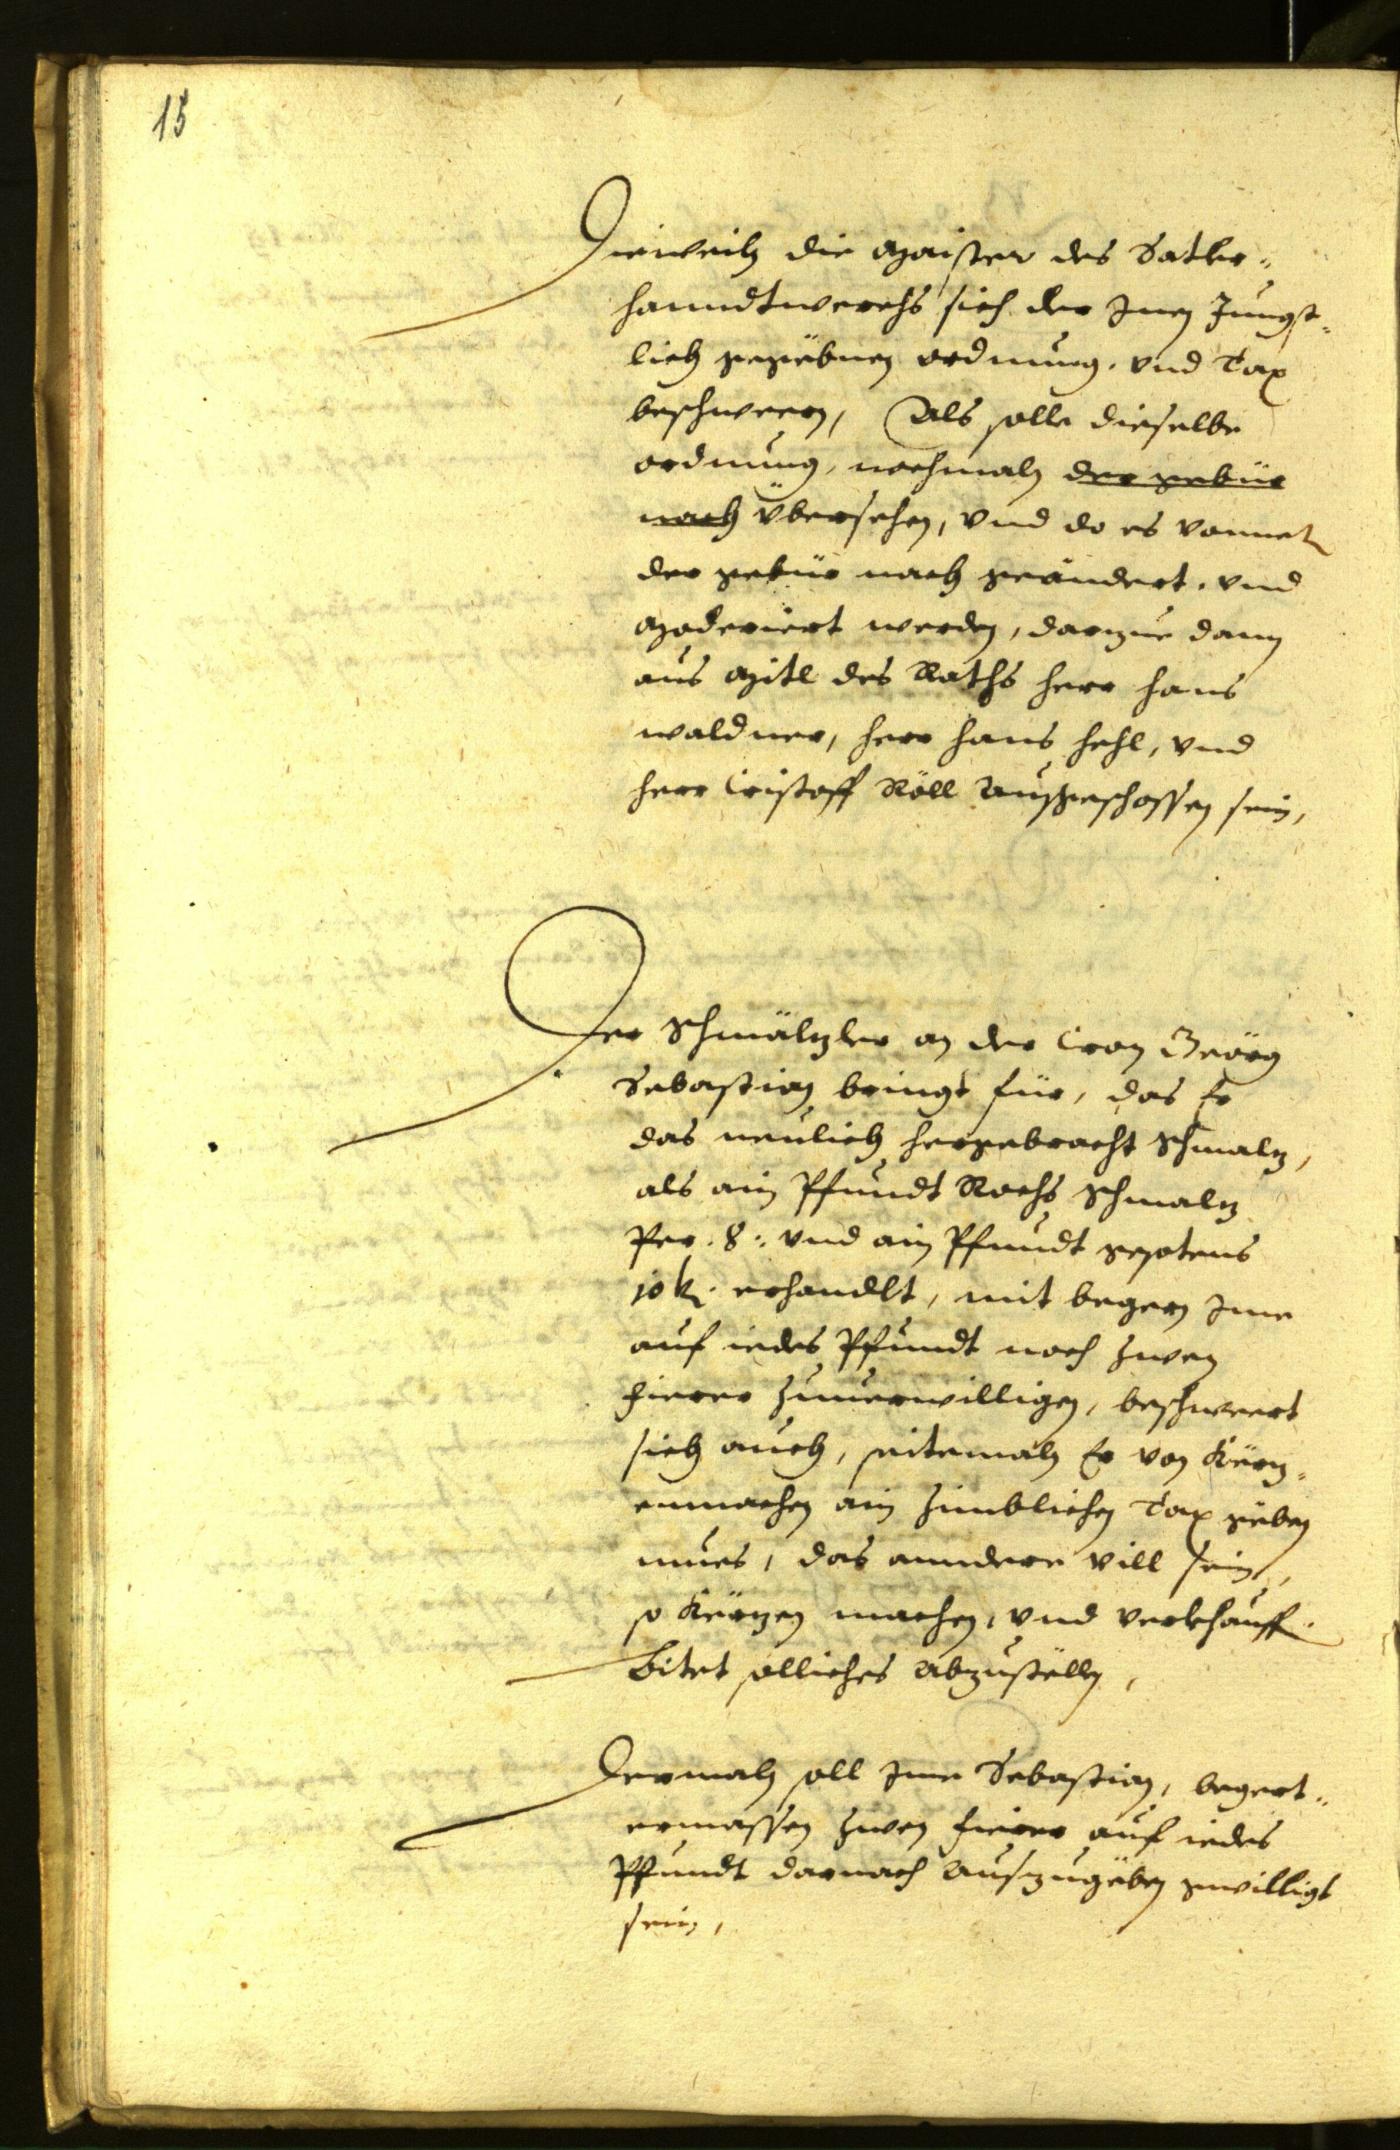 15
Dieweiln die Maister des Satler¬
hanndtwerchs sich der Inen Jungst¬
lich gegebnen ordnung, vnd Tax
beschwern, Als solle dieselbe
ordnung, nochmaln der gebür
nach übersehen, vnd do es vonnetn
der gebür nach geändert, vnd
moderiert werden, darzue dann
aus mitl des Raths herr Hans
waldner, herr Hans Hehl, vnd
herr Cristoff Röll Außgeschossen sein,
Der Schmältzler an der Cron Geörg
Sebastian bringt für, das Er
das neulich hergebracht Schmaltz,
als ain Pfundt Rochs Schmaltz
Per. 8. vnd ain Pfundt gesotens
10 k. erhandlt, mit begern Ime
auf iedes Pfundt noch zwen
fierer zuuerwilligen, beschwert
sich auch, seitemaln Er von Kërtz¬
enmachen ain zimblichen Tax geben
mues, das anndere vill sein,
so Kërtzen machen, vnd verkhauffn
Bitet solliches Abzustellen,
Dermaln soll Ime Sebastian, begert¬
ermassen zwen fierer auf iedes
Pfundt darnach Auszugëben gwilligt
sein,